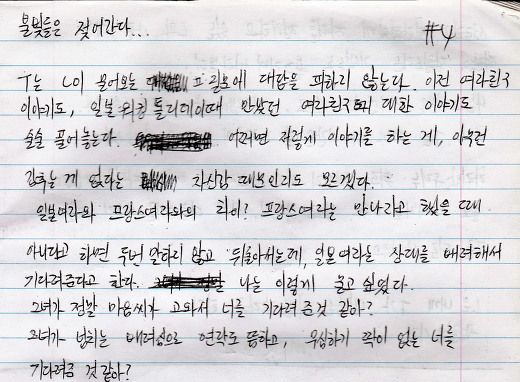 불빛들은 젖어간다...
#4
T는 L이 물어보는 필요에 대답을 피하지 않는다. 이전 여자친구
이야기도, 일본 워킹 홀리데이때 만났던 여자친구에 대한 이야기도
술술 풀어놓는다. 어쩌면 저렇게 이야기를 하는 게, 아무런
감추는 게 없다는 자신감 때문인지도 모르겠다.
일본여자와 프랑스여자와의 차이? 프랑스여자는 만나자고 했을 때
아니라고 하면 두번 말하지 않고 뒤돌아서는데, 일본여자는 상대를 배려해서
기다려준다고 한다. 나는 이렇게 묻고 싶었다.
그녀가 정말 마음씨가 고와서 너를 기다려준것 같아?
그녀가 넘치는 배려심으로 연락도 뜸하고, 무심하기 짝이 없는 너를
기다려준 것 같아?